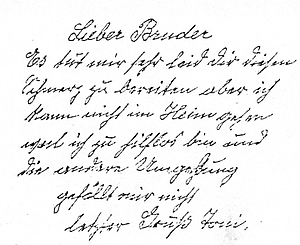 Lieber Bruder
Es tut mir sehr leid dir diesen
Schmerz zu bereiten aber ich
kann nicht im Heim gehen
weil ich zu hilflos bin und
die andere Umgebung
gefällt mir nicht
letzter Gruß Toni.